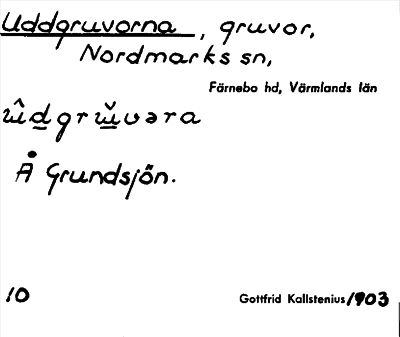 Uddgruvorna, gruvor,
Nordmarks sn,
Färnebo hd, Värmlands län
ɯ̂d̲grɯ̲̌vəra
Å Grundsjön.
10
Gottfrid Kallstenius/1903